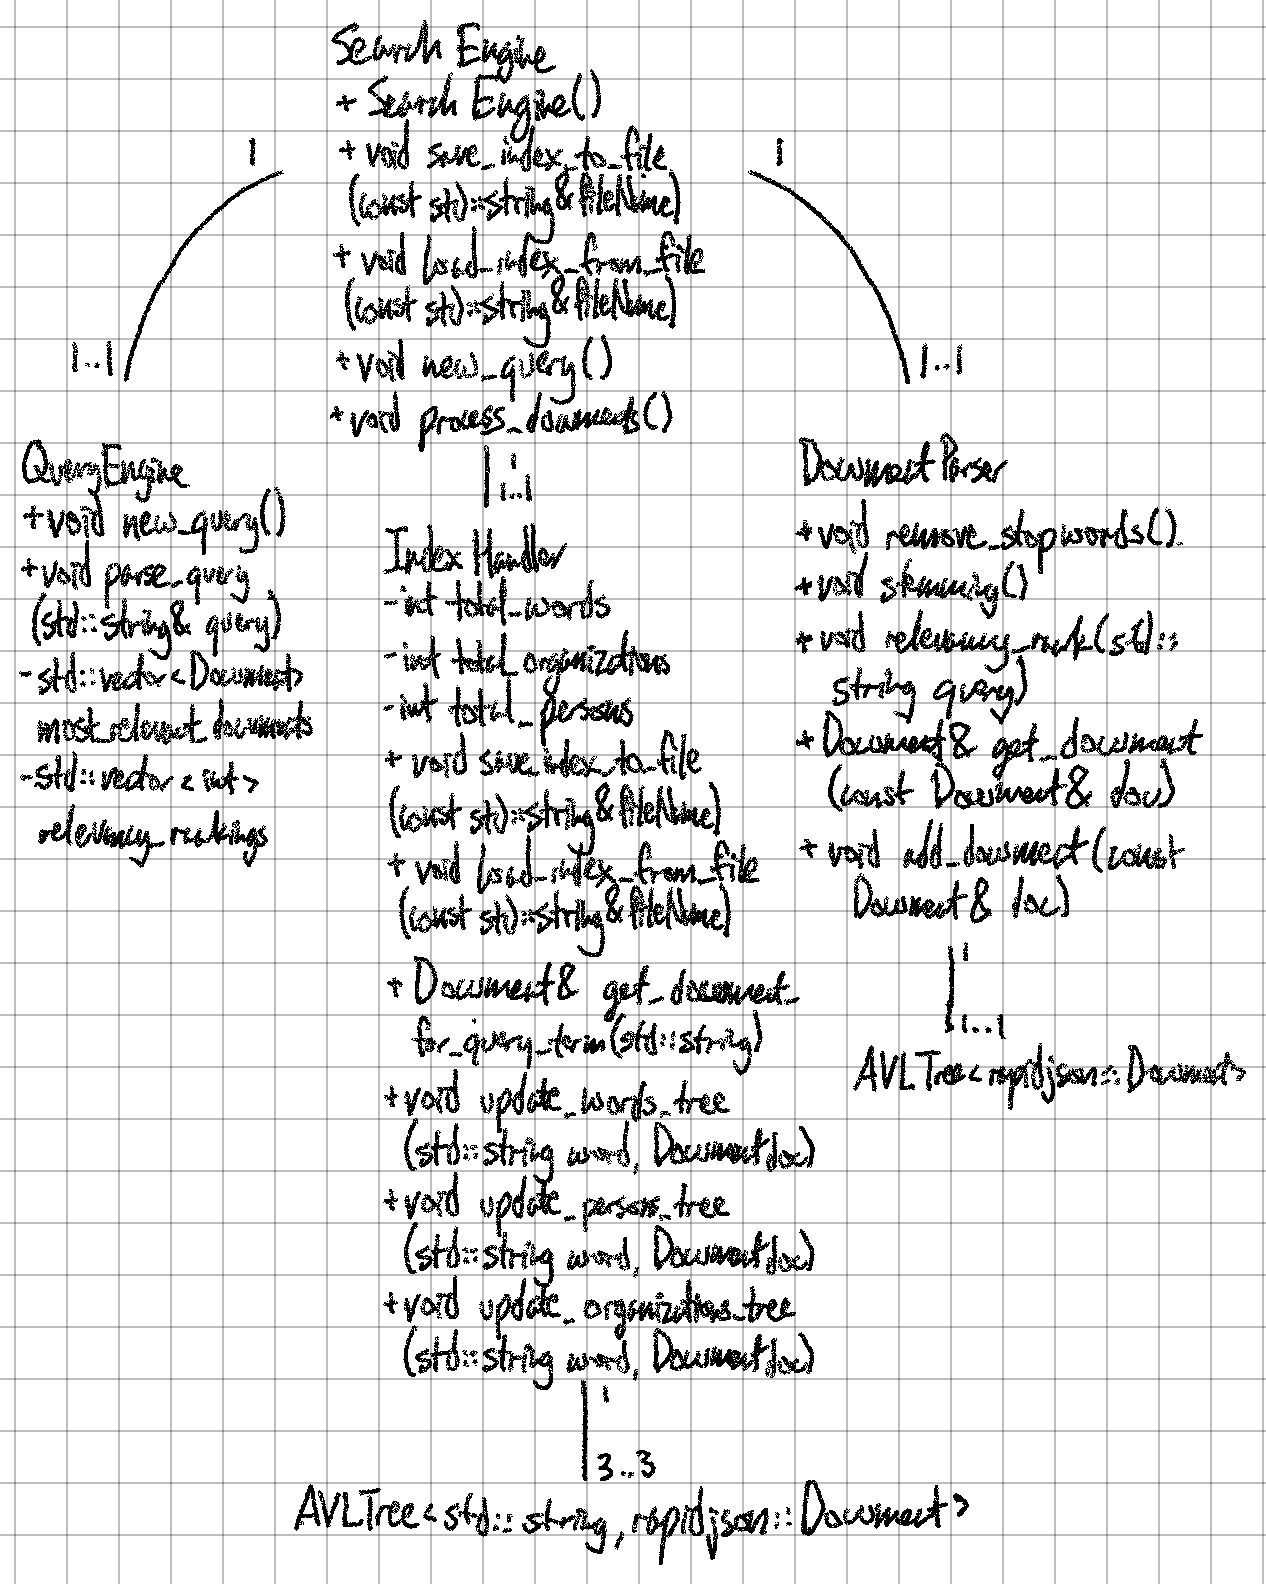 Search Engine
+ Search Engine()
+ void save_index_to_file
(const std::string & fileName)
+ void load_index_from_file
(const std::string & fileName)
+ void new_query()
+ void process_documents()
1
1..1
1
1..1
1
1..1
QueryEngine
+ void new_query()
+ void parse_query
(std::string& query)
- std::vector<Document>
most_relevant_documents
- std::vector<int>
relevancy_rankings
Index Handler
- int total_words
- int total_organizations
- int total_persons
+ void save_index_to_file
(const std::string & fileName)
+ void load_index_from_file
(const std::string & fileName)
+ Document& get_document_
for_query_term(std::string)
+ void update_words_tree
(std::string word, Document doc)
+ void update_persons_tree
(std::string word, Document doc)
+ void update_organizations_tree
(std::string word, Document doc)
1
3..3
AVLTree<std::string, rapidjson::Document>
Document Parser
+ void remove_stopwords()
+ void stemming()
+ void relevancy_rank(std::
string query)
+ Document& get_document
(const Document& doc)
+ void add_document(const
Document& doc)
1
1..1
AVLTree<rapidjson::Document>